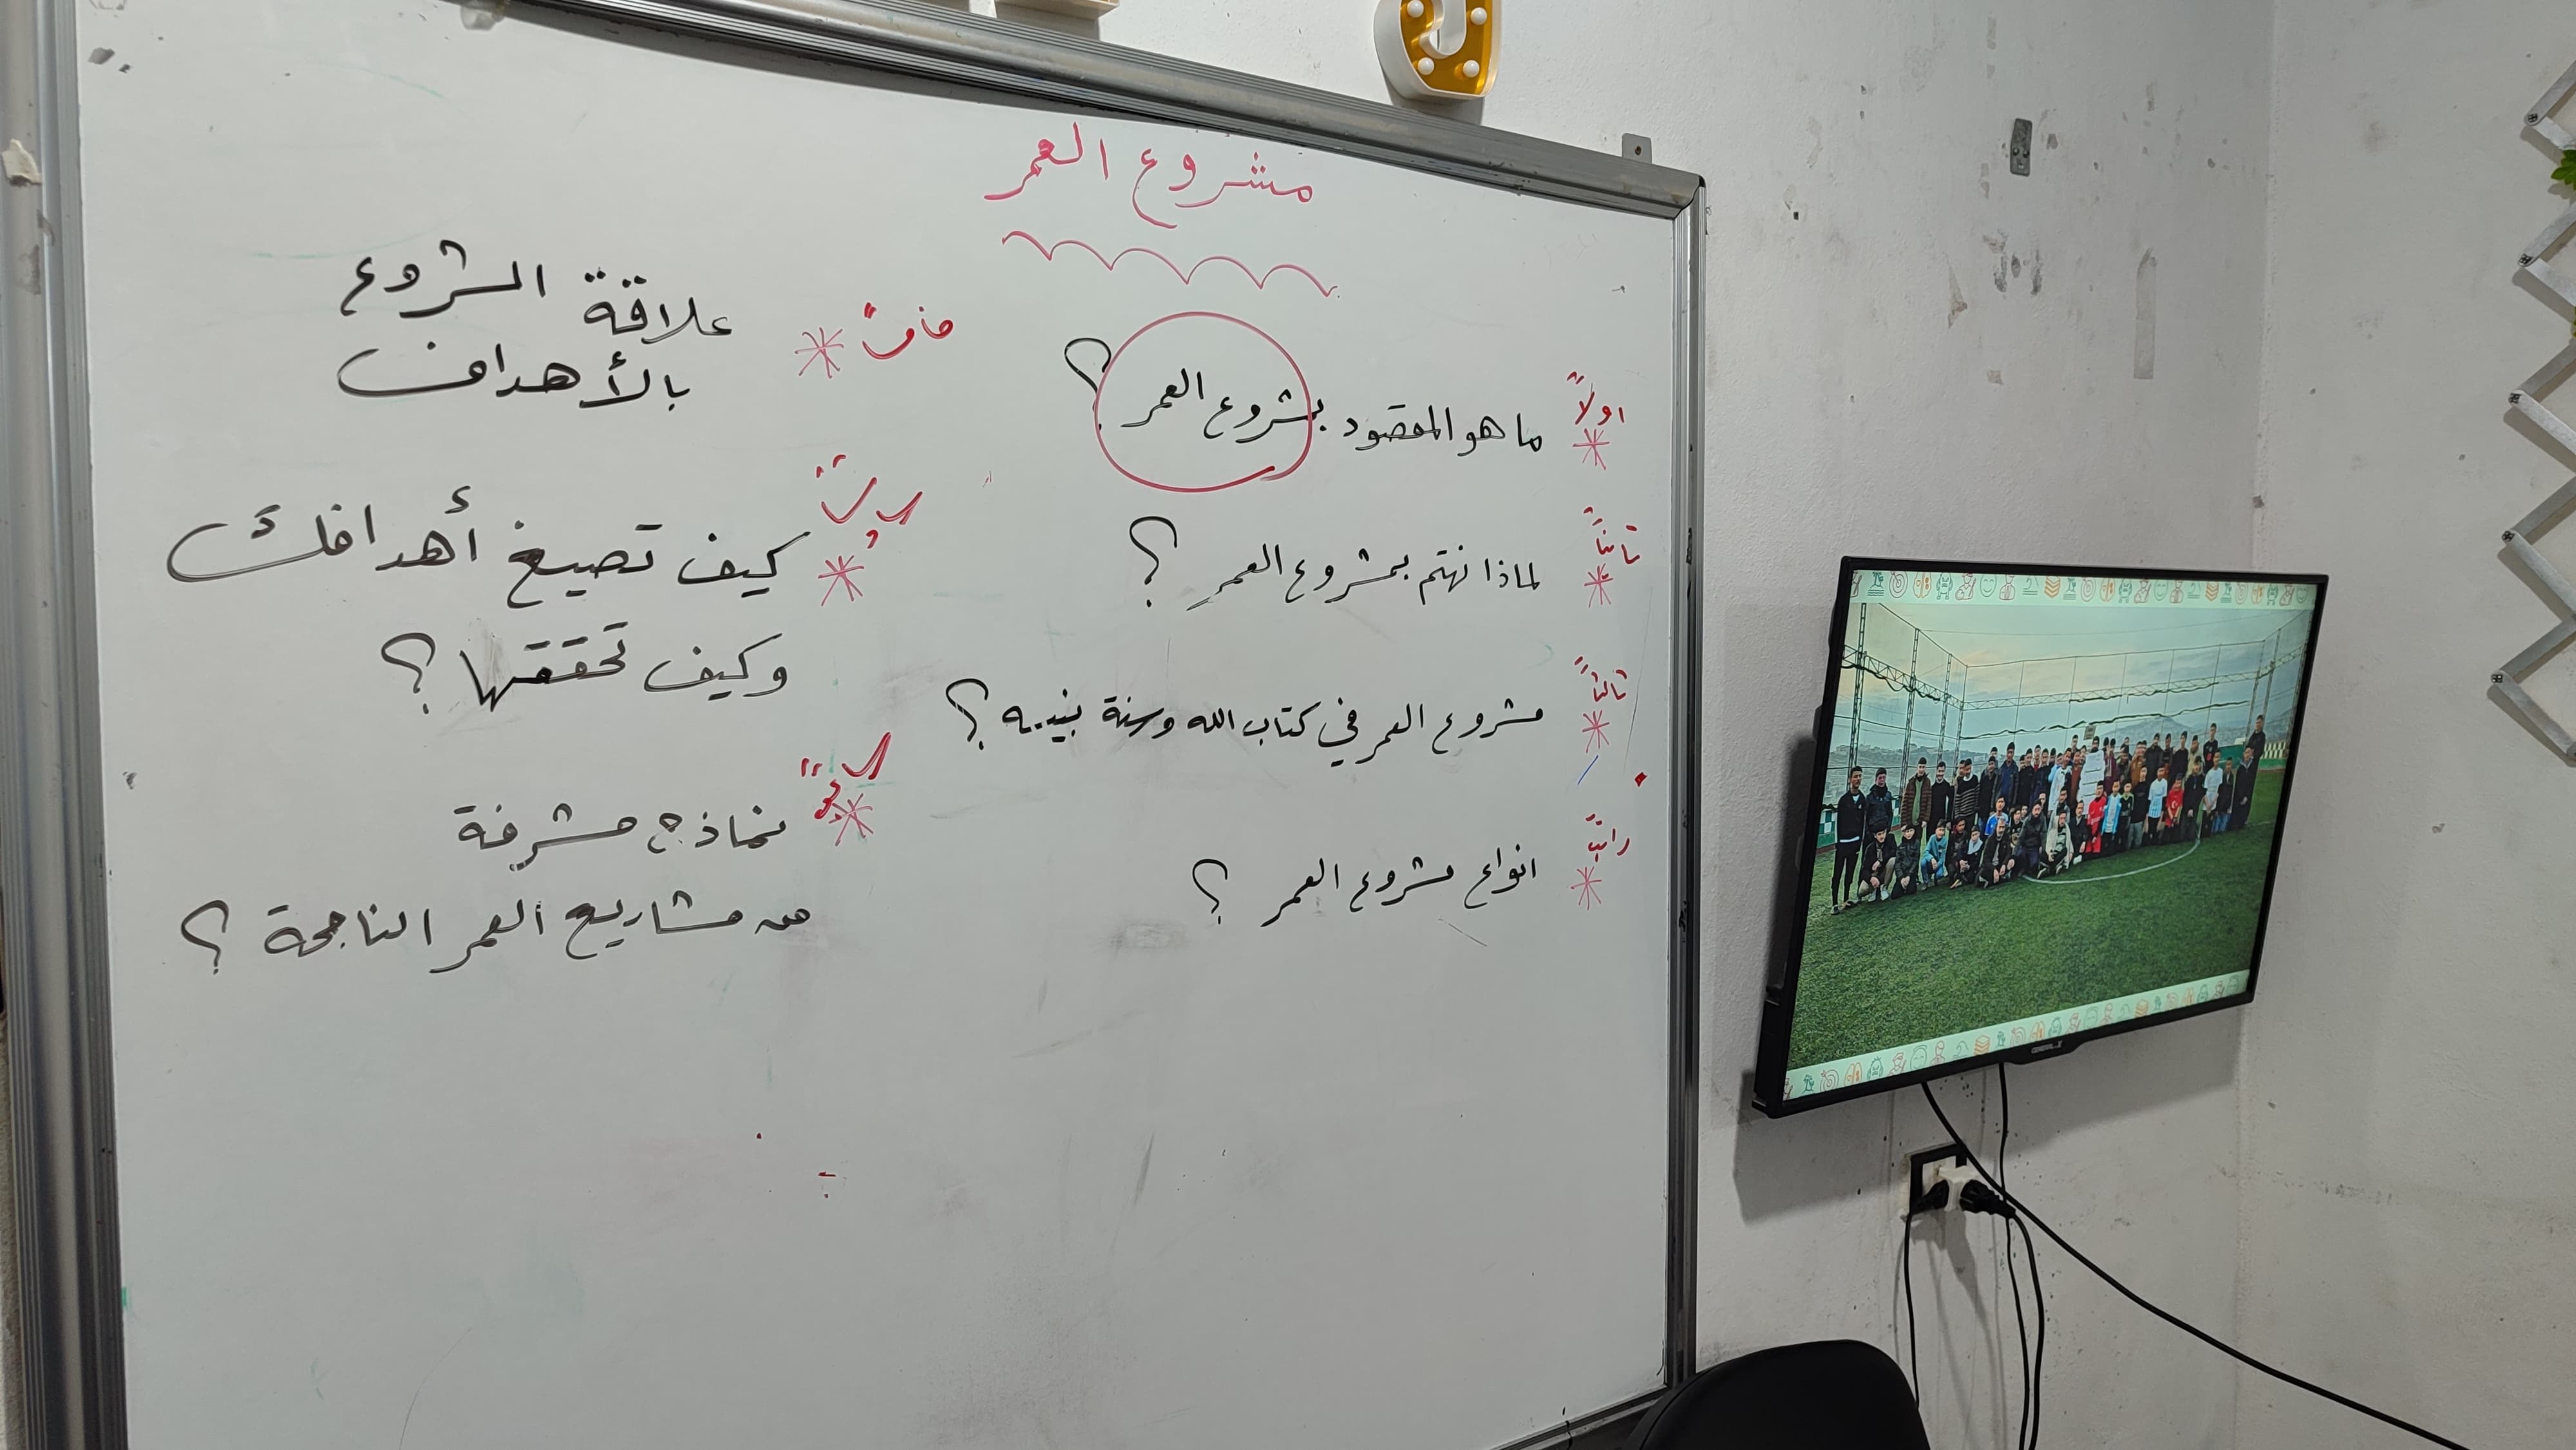 مشروع العمر
اولاً
* ما هو المقصود بمشروع العمر ؟
ثانياً
* لماذا نهتم بمشروع العمر ؟
ثالثاً
* مشروع العمر في كتاب الله وسنة نبيه ؟
رابعاً
* انواع مشروع العمر ؟
خامساً
* علاقة المشروع
بالأهداف
سادساً
* كيف تصيغ أهدافك
وكيف تحققها ؟
* نماذج مشرفة
من مشاريع العمر الناجحة ؟